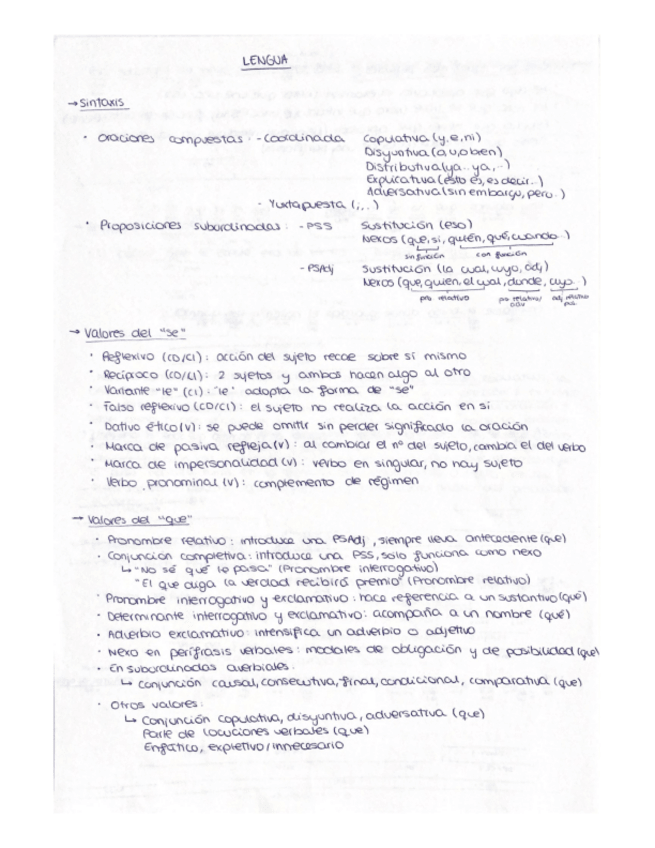 LENGUA
→ Sintaxis
· Oraciones compuestas: - Coordinada Copulativa (y, e, ni)
Disyuntiva (o, u, o bien)
Distributiva (ya.. ya, ..)
Explicativa (esto es, es decir..)
Adversativa (sin embargo, pero..)
- Yuxtapuesta (; , .)
· Proposiciones subordinadas: - PSS Sustitución (eso)
Nexos (que, si, quién, qué, cuando..)
sin función con función
- PSAdj Sustitución (la cual, cuyo, adj)
Nexos (que, quien, el cual, donde, cuyo..)
pro relativo pro relativo/ adj relativo
adv pos.
→ Valores del "se"
· Reflexivo (CD/CI): acción del sujeto recae sobre sí mismo
· Recíproco (CD/CI): 2 sujetos y ambos hacen algo al otro
· Variante "le" (CI): "le" adopta la forma de "se"
· Falso reflexivo (CD/CI): el sujeto no realiza la acción en sí
· Dativo ético (v): se puede omitir sin perder significado la oración
· Marca de pasiva refleja (v): al cambiar el nº del sujeto, cambia el del verbo
· Marca de impersonalidad (v): verbo en singular, no hay sujeto
· Verbo pronominal (v): complemento de régimen
→ Valores del "que"
· Pronombre relativo: introduce una PSAdj, siempre lleva antecedente (que)
· Conjunción completiva: introduce una PSS, solo funciona como nexo
↳ "No sé qué le pasa" (Pronombre interrogativo)
"El que diga la verdad recibirá premio" (Pronombre relativo)
· Pronombre interrogativo y exclamativo: hace referencia a un sustantivo (qué)
· Determinante interrogativo y exclamativo: acompaña a un nombre (qué)
· Adverbio exclamativo: intensifica un adverbio o adjetivo
· Nexo en perífrasis verbales: modales de obligación y de posibilidad (que)
· En subordinadas averbiales:
↳ conjunción causal, consecutiva, final, condicional, comparativa (que)
· Otros valores:
↳ Conjunción copulativa, disyuntiva, adversativa (que)
Parte de locuciones verbales (que)
Enfático, expletivo/innecesario